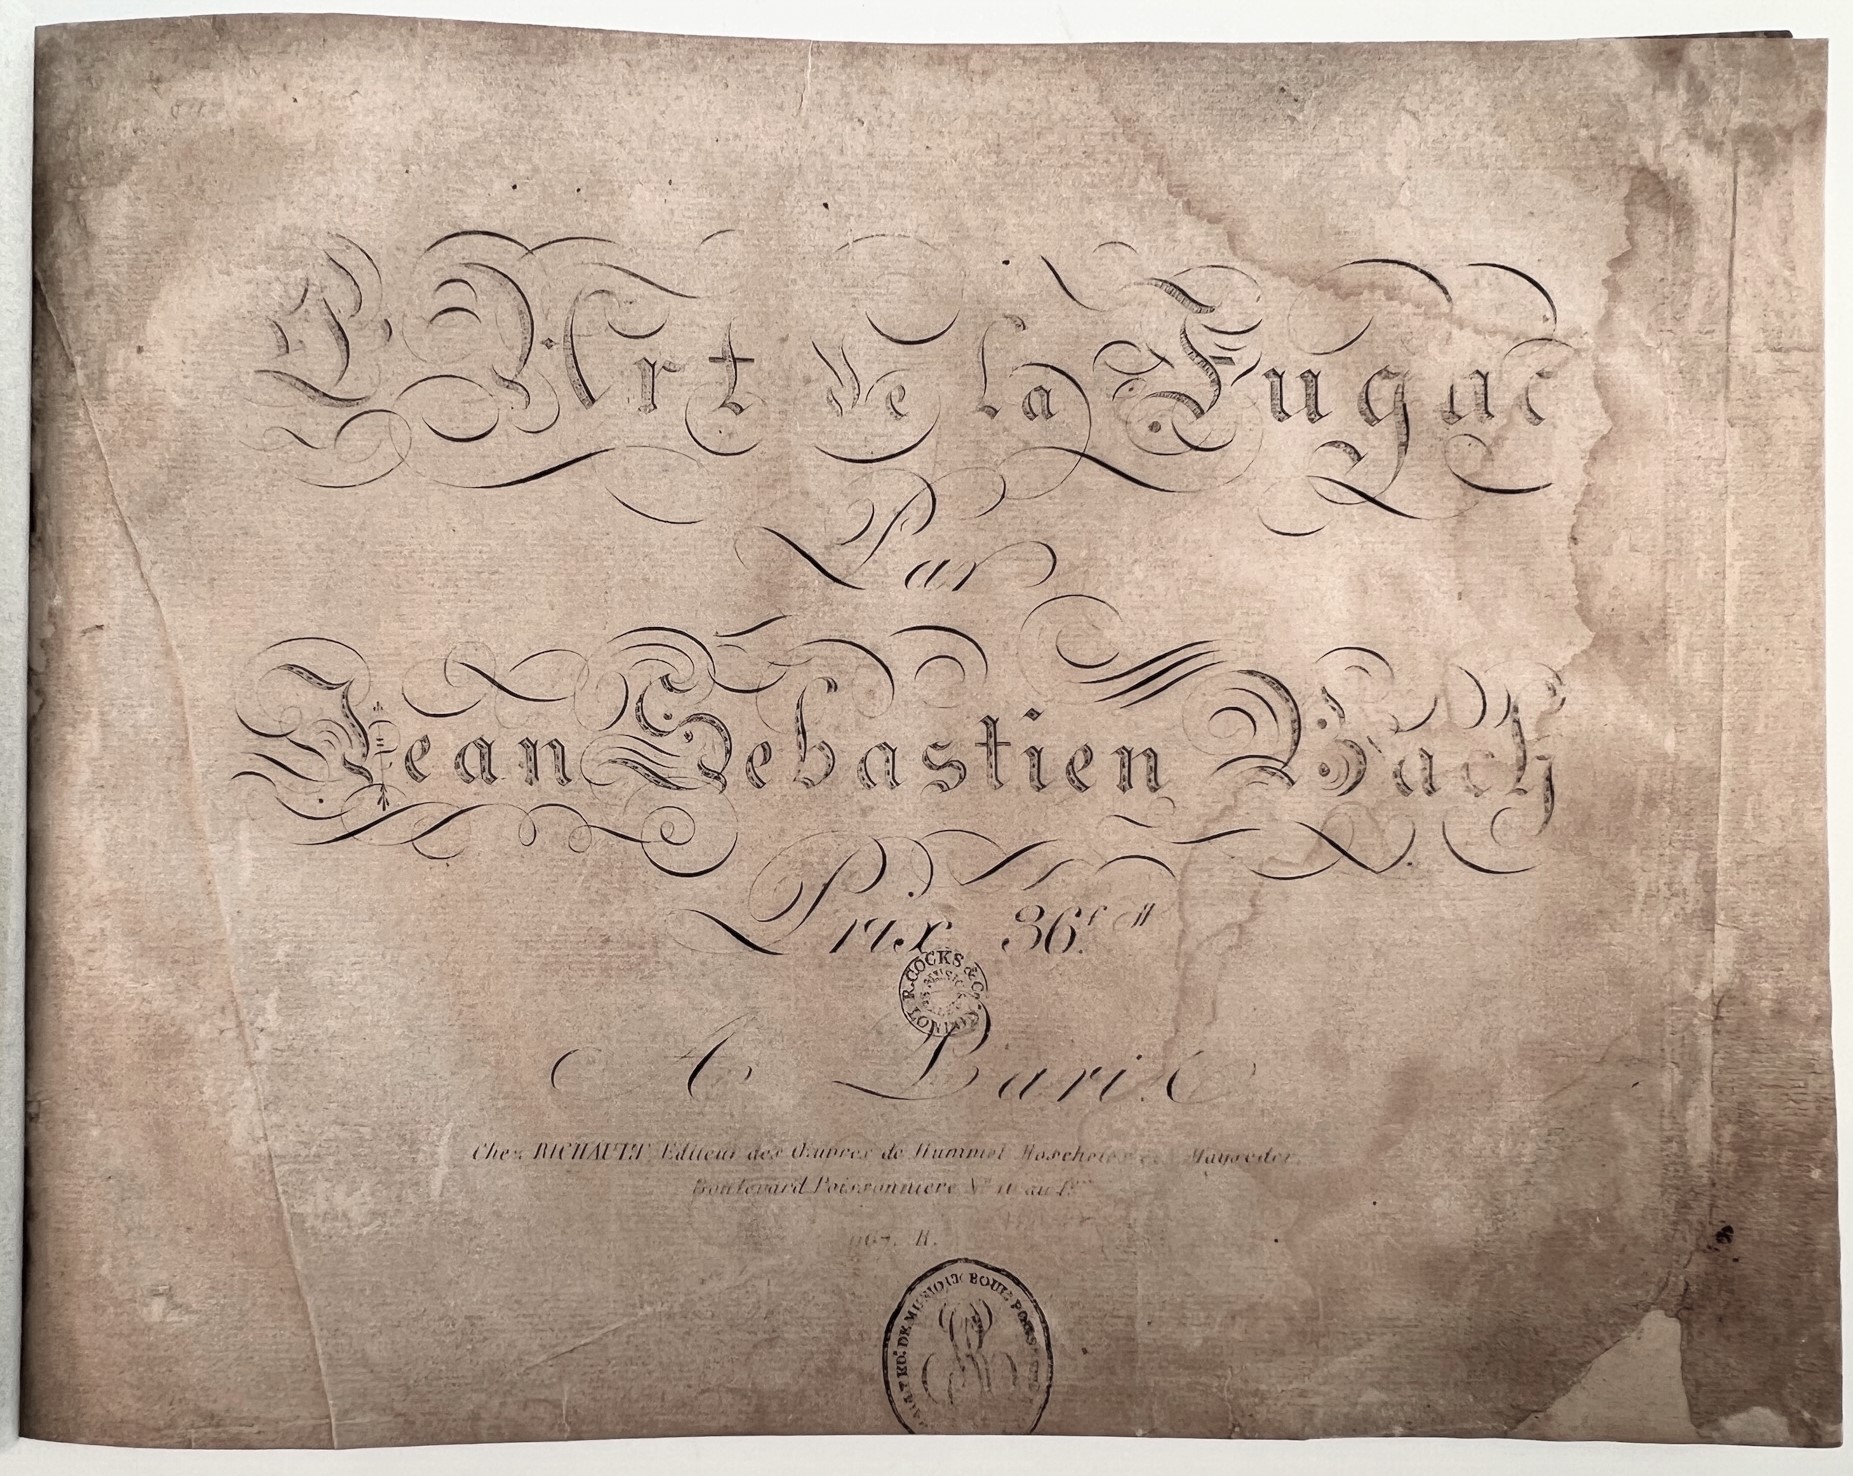 L'Art de la Fugue
Par
Jean Sebastien Bach
Prix 36.f
R. COCKS & Co.
MUSIC
LONDON
A Paris
Chez RICHAULT, Editeur des Œuvres de Hummel Moscheles et Mayseder,
Boulevard Poissonniere No. 16 au 1er
R.
ED. DE MUSIQUE BOULD. POISS.